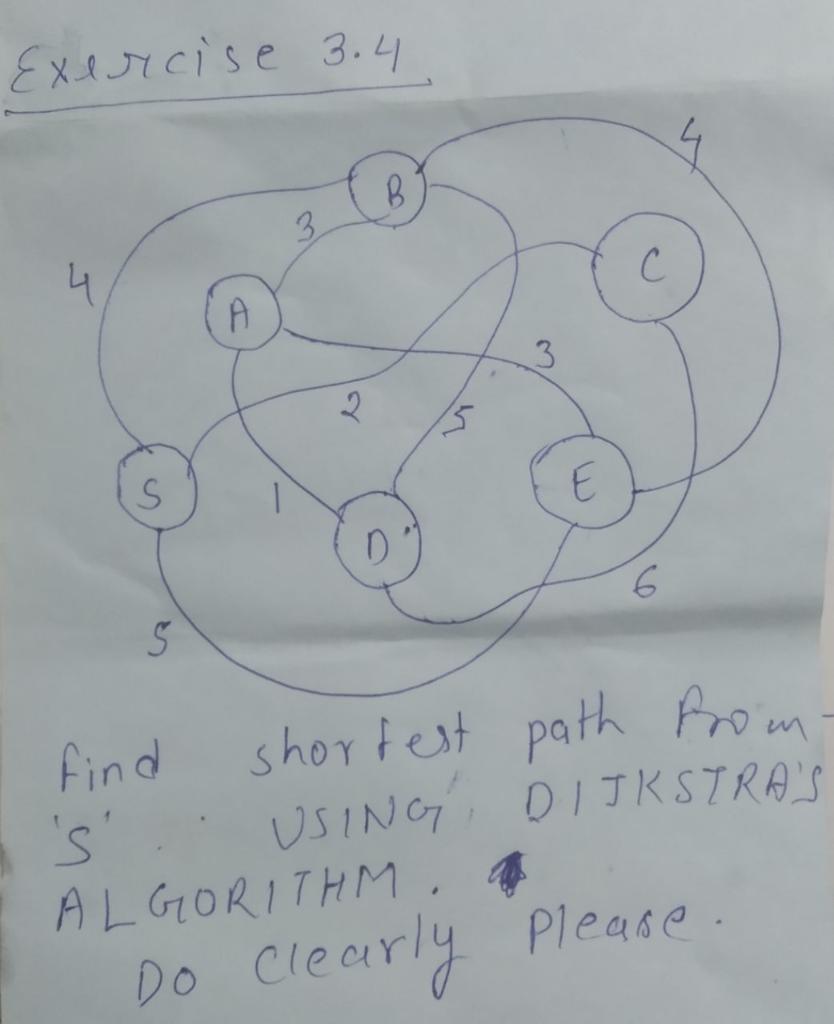 Exercise 3.4
4
B
3
4
C
A
3
2
5
S
E
1
D
6
5
find shortest path from
'S' USING DIJKSTRA'S
ALGORITHM.
Do clearly please.